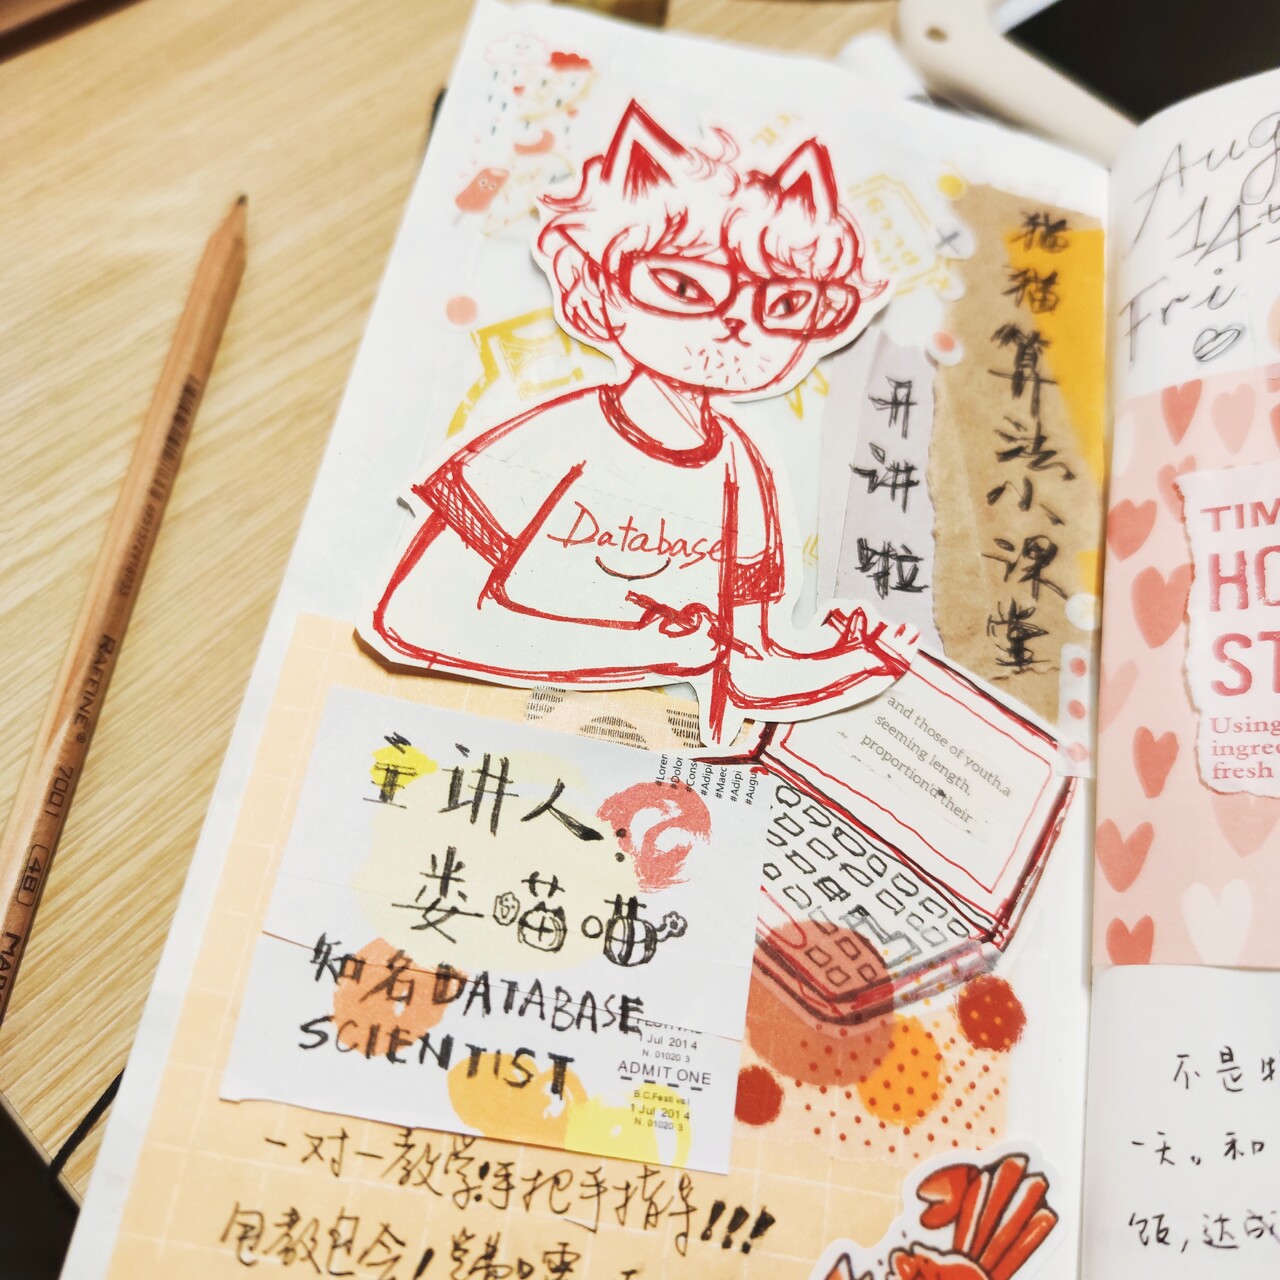 猫猫算法小课堂
开讲啦
Database
and those of youth,a
seeming length,
proportiond their
主讲人:
娄喵喵
知名DATABASE
SCIENTIST
#Lorem
#Dolor
#Cons
#Adipi
#Maec
#Adipi
#Augu
1 Jul 2014
N. 01020 3
ADMIT ONE
B.C.Festival
1 Jul 2014
N. 01020 3
一对一教学手把手指导!!!
包教包会!
RAFFINE® 7001 4B MARCO
Aug
14th
Fri
TIM
HO
ST
Using
ingre
fresh
不是
一天。和
饭,达成